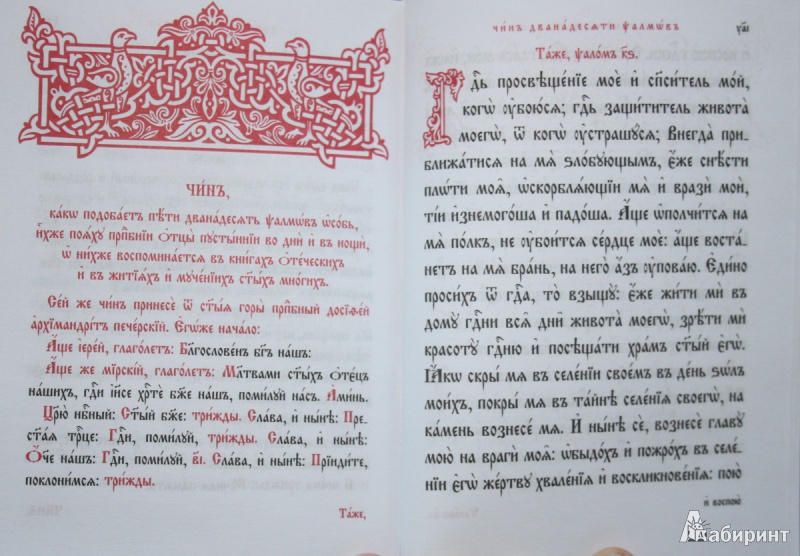 ЧИ́НЪ,
ка́кѡ подоба́етъ пѣ́ти двана́десѧть ѱалмѡ́въ ѡ҆со́бь,
и҆̀хже поѧ́ху прпⷣбнїи ѻ҆тцы̀ пꙋсты́ннїи во днѝ и҆ въ нощѝ,
ѡ҆ ни́хже воспомина́етсѧ въ кни́гахъ ѻ҆те́ческихъ
и҆ въ житїѧ́хъ и҆ мꙋче́нїихъ ст҃ы́хъ мно́гихъ.
Се́й же чи́нъ принесѐ ѿ ст҃ы́ѧ горы̀ прпⷣбный досїѳе́й
а҆рхїмандрі́тъ пече́рскїй. Е҆гѡ́же нача́ло:
А҆́ще і҆ере́й, глаго́летъ: Бл҃гослове́нъ бг҃ъ на́шъ:
А҆́ще же мїрскі́й, глаго́летъ: Мл҃твами ст҃ы́хъ ѻ҆те́цъ
на́шихъ, гдⷭ҇и і҆и҃се хрⷭ҇тѐ бж҃е на́шъ, поми́лꙋй на́съ. А҆ми́нь.
Цр҃ю̀ нбⷭ҇ный: Ст҃ы́й бж҃е: три́жды. Сла́ва, и҆ ны́нѣ: Пре-
ст҃а́ѧ трⷪ҇це: Гдⷭ҇и, поми́лꙋй, три́жды. Сла́ва, и҆ ны́нѣ:
Ѻ҆́ч҃е на́шъ: Гдⷭ҇и, поми́лꙋй, в҃і. Сла́ва, и҆ ны́нѣ: Прїиди́те,
поклони́мсѧ: три́жды.
Та́же,
чи́нъ двана́десѧти ѱалмѡ́въ
Та́же, ѱало́мъ к҃ѕ.
Гдⷭ҇ь просвѣще́нїе моѐ и҆ сп҃си́тель мо́й,
когѡ̀ ᲂу҆бою́сѧ; гдⷭ҇ь защи́титель живота̀
моегѡ̀, ѿ когѡ̀ ᲂу҆страшꙋ́сѧ; Внегда̀ при-
ближа́тисѧ на мѧ̀ ѕло́бꙋющымъ, є҆́же снѣ́сти
плѡ́ти моѧ̑, ѡ҆скорблѧ́ющїи мѧ̀ и҆ вразѝ моѝ,
ті́и и҆знемого́ша и҆ падо́ша. А҆́ще ѡ҆полчи́тсѧ на
мѧ̀ по́лкъ, не ᲂу҆бои́тсѧ се́рдце моѐ: а҆́ще воста́-
нетъ на мѧ̀ бра́нь, на него̀ а҆́зъ ᲂу҆пова́ю. Е҆ди́но
проси́хъ ѿ гдⷭ҇а, то̀ взыщꙋ̀: є҆́же жи́ти мѝ въ
домꙋ̀ гдⷭ҇ни всѧ̑ дни̑ живота̀ моегѡ̀, зрѣ́ти мѝ
красотꙋ̀ гдⷭ҇ню и҆ посѣща́ти хра́мъ ст҃ы́й є҆гѡ̀.
Ꙗ҆́кѡ скры́ мѧ въ селе́нїи свое́мъ въ де́нь ѕѡ́лъ
мои́хъ, покры́ мѧ въ та́йнѣ селе́нїѧ своегѡ̀, на
ка́мень вознесе́ мѧ. И҆ ны́нѣ сѐ, вознесѐ главꙋ̀
мою̀ на врагѝ моѧ̑: ѡ҆быдо́хъ и҆ пожро́хъ въ селе́-
нїи є҆гѡ̀ же́ртвꙋ хвале́нїѧ и҆ воскликнове́нїѧ: пою̀
и҆ воспою̀
Лабиринт